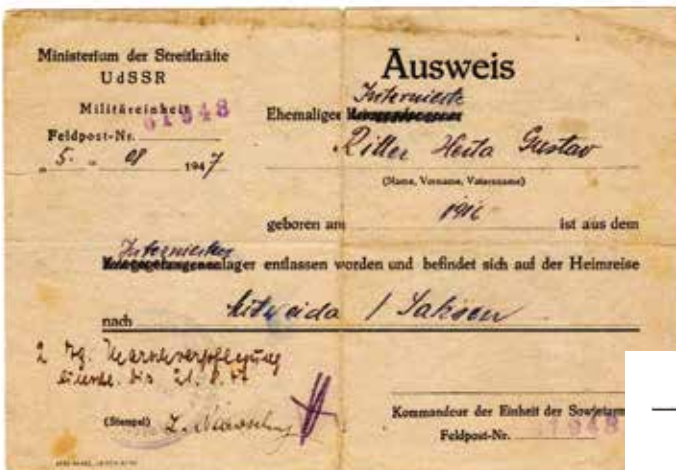 Ministerium der Streitkräfte
UdSSR
Militäreinheit
Feldpost-Nr. 61948
" 5. " 08 1947
Ausweis
Internierte
Ehemaliger Kriegsgefangener
Ritter Herta Gustav
(Name, Vorname, Vatersname)
geboren am 1916 ist aus dem
Internierten
Kriegsgefangenenlager entlassen worden und befindet sich auf der Heimreise
nach Mitweida / Saksen
2 Tg. Marschverpflegung
bis 21. 8. 47
(Stempel)
Kommandeur der Einheit der Sowjetarm
Feldpost-Nr. 61948